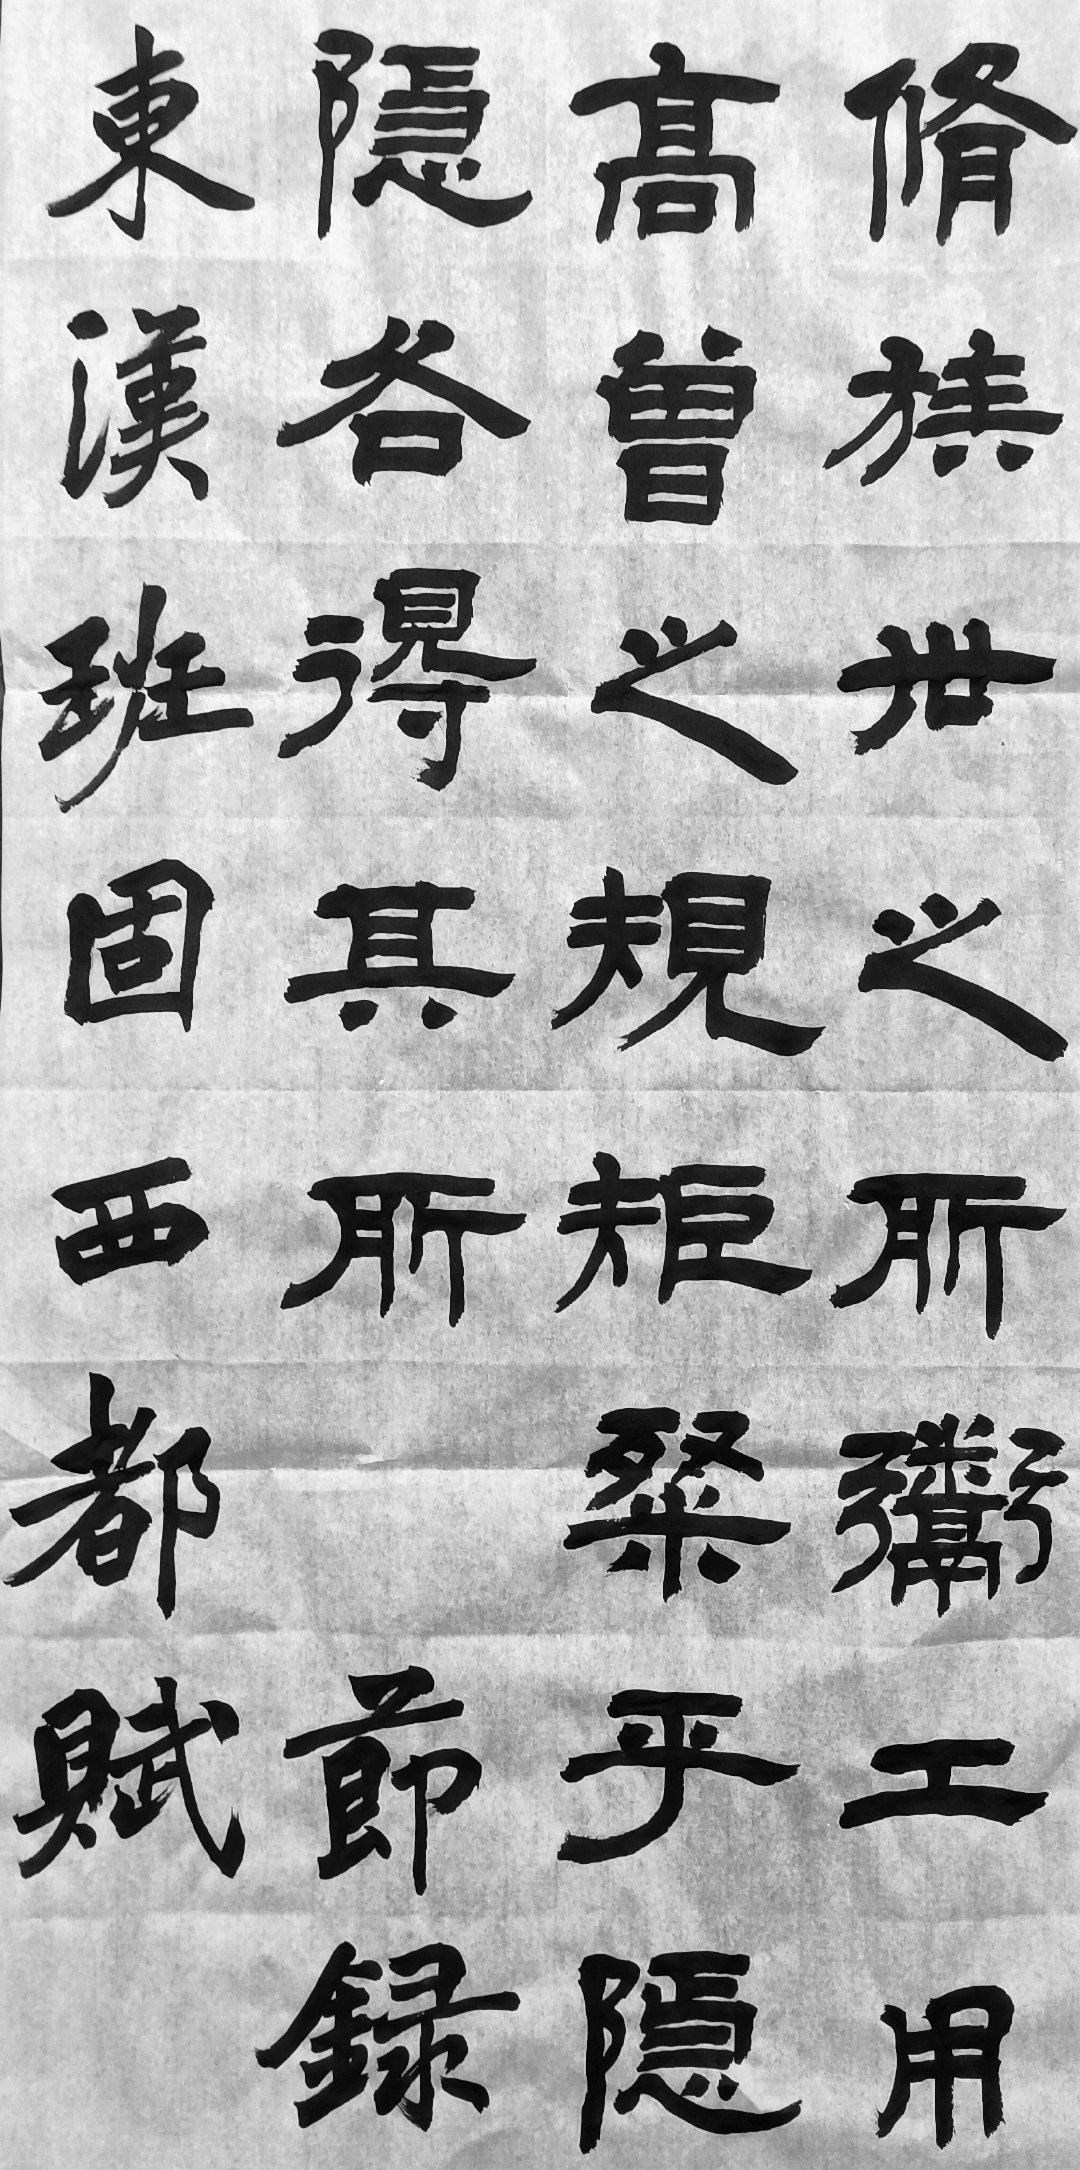 脩族世之所鬻工用
髙曾之規矩粲乎隱
隱各得其所 節録
東漢班固西都賦